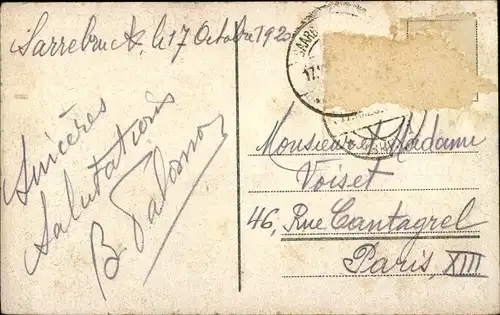 Sarrebruck, le 17 Octobre 1920
Sincères
Salutations
B.
SAARB
17.
Monsieur et Madame
Voiset
46, Rue Cantagrel
Paris, XIII